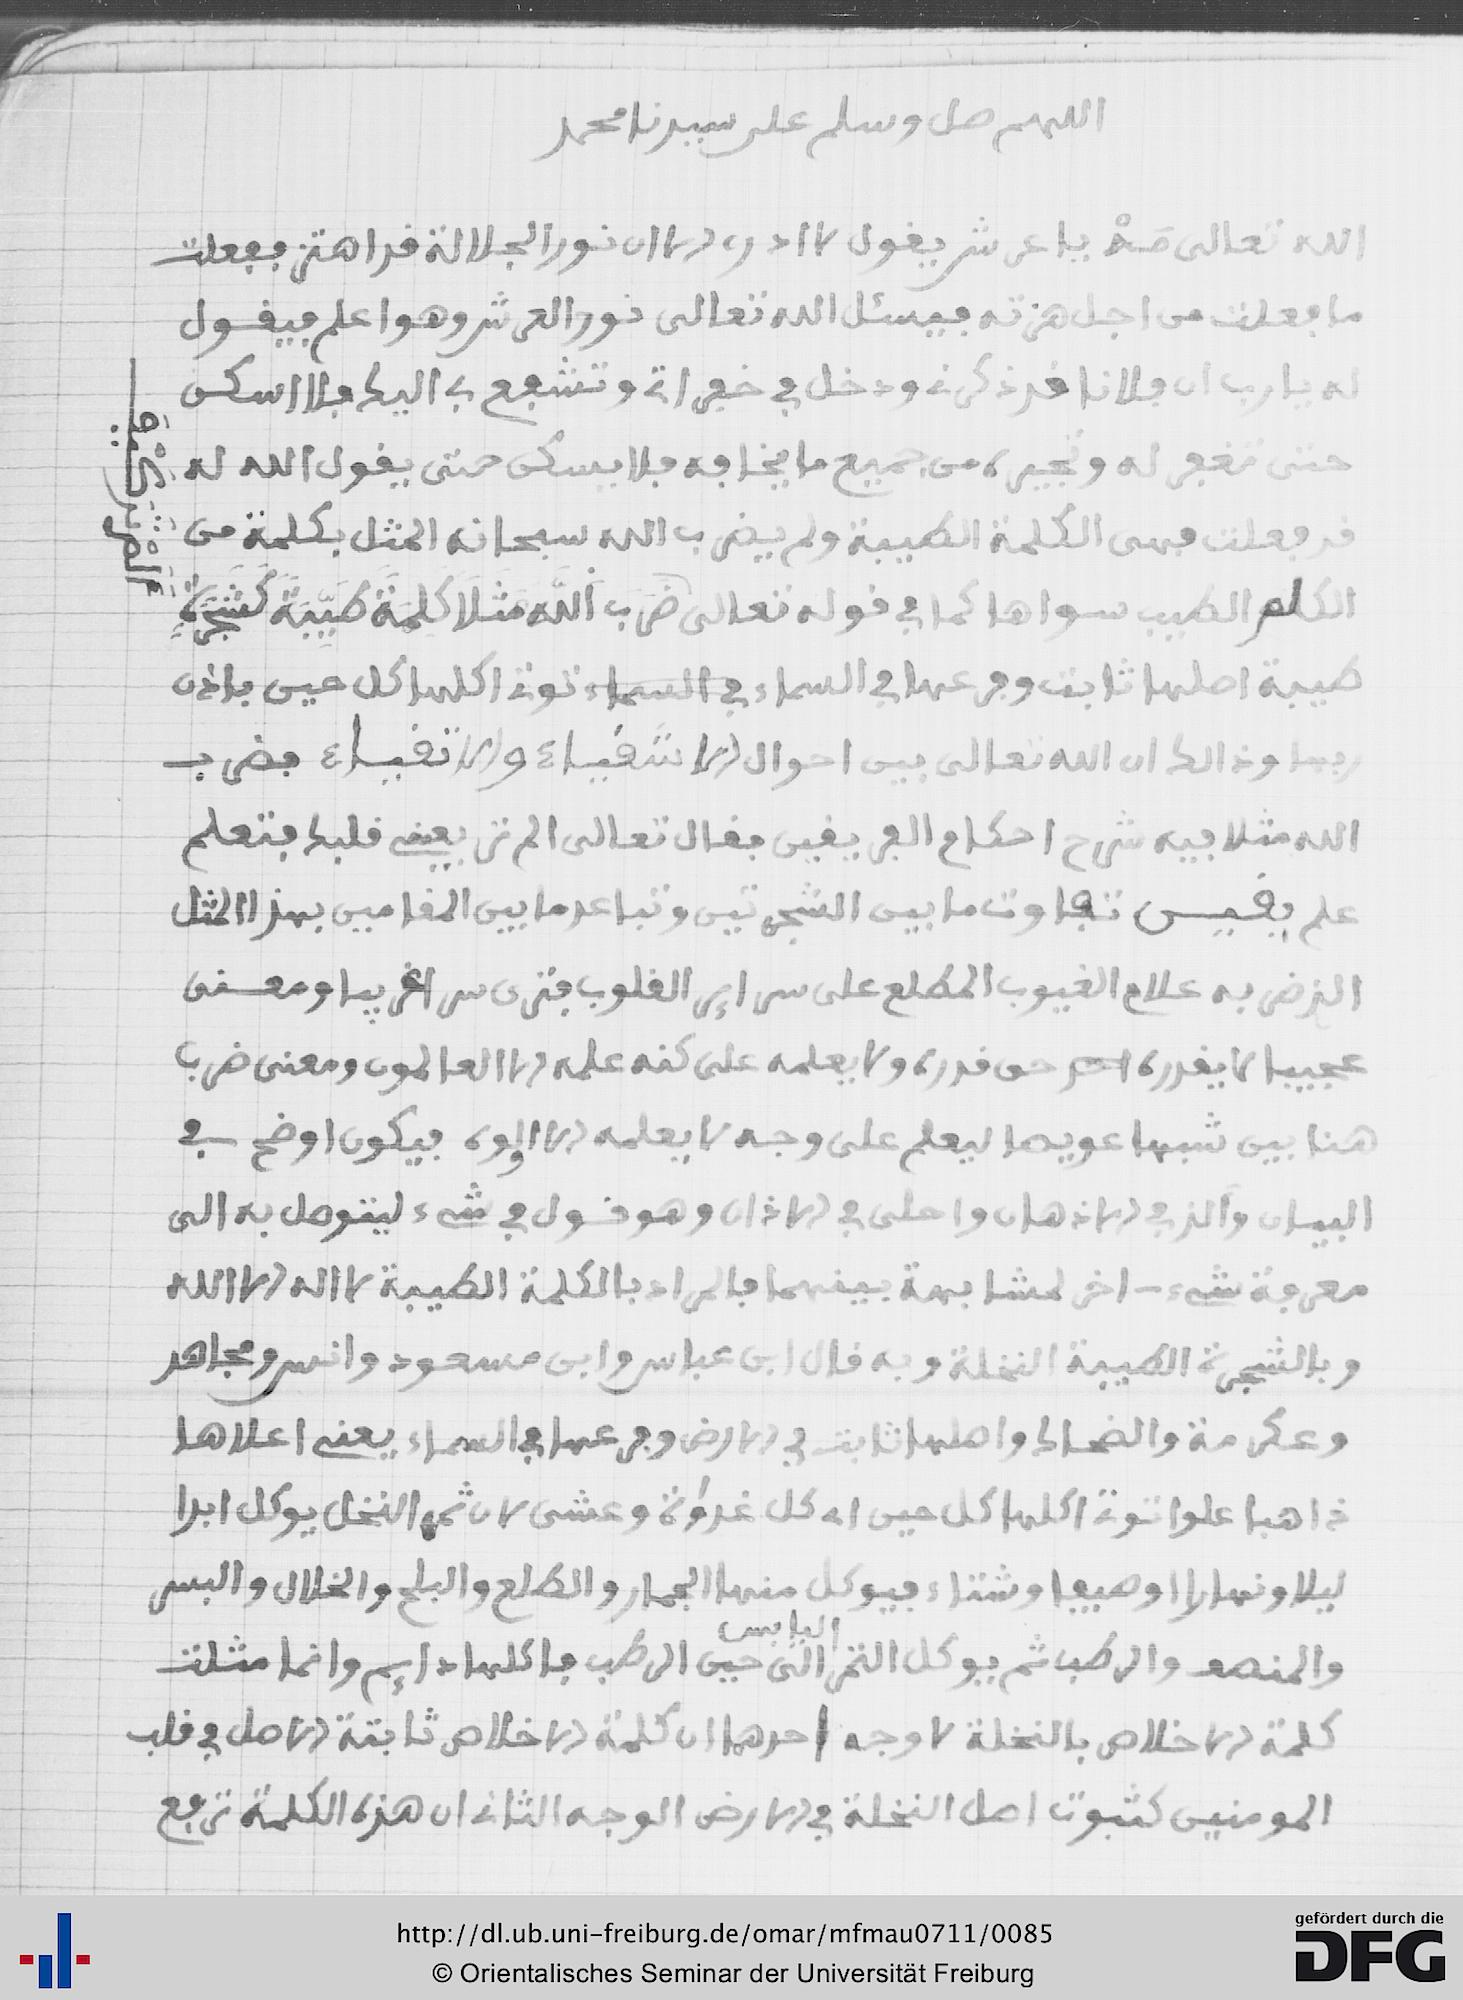 اللهم صل وسلم على سيدنا محمد
الله تعالى مَهْ يا عرش يقول لا ادري الا ان نور الجلالة قد اهتز ففعلت
ما فعلت من اجل هزته فيسئل الله تعالى نور العرش وهو اعلم فيقول
له يا رب ان فلانا قد ذكرني ودخل في خفراتي وتشفع بي اليك فلا اسكن
حتى تغفر له وتجيره من جميع ما يخافه فلا يسكن حتى يقول الله له
قد فعلت فهى الكلمة الطيبة ولم يضرب الله سبحانه المثل بكلمة من
الكلم الطيب سواها كما في قوله تعالى ضَرَبَ اللَّهُ مَثَلَا كَلِمَةً طَيِّبَةً كَشَجَرَةٍ
طيبة اصلها ثابت وفرعها في السماء في السماء توتي اكلها كل حين باذن
ربها وذالك ان الله تعالى بين احوال الاشقياء والاتقياء فضرب
الله مثلا فيه شرح احكام الفريقين فقال تعالى الم تر يعني قلبك فتعلم
علم يقين تفاوت ما بين الشجرتين وتباعد ما بين المقامين بهذا المثل
الذ ضربه علام الغيوب المطلع على سراير القلوب فترى سرا غريبا ومعنى
عجيبا لا يقدره احد حق قدره ولا يعلمه على كنه علمه الا العالمون ومعنى ضرب
هنا بين شبها عويصا ليعلم على وجه لا يعلمه الا الوه فيكون اوضح في
البيان والذ في الاذهان واحلى في الاذان وهو قول في شيء ليتوصل به الى
معرفة شيء اخر لمشابهة بينهما فالمراد بالكلمة الطيبة لا اله الا الله
وبالشجرة الطيبة النخلة وبه قال ابن عباس وابن مسعود وانس ومجاهد
وعكرمة والضحاك واصلها ثابت في الارض وفرعها في السماء يعني اعلاها
ذاهبا علوا توتي اكلها كل حين اى كل غدوة وعشى لان ثمر النخل يوكل ابدا
ليلا ونهارا وصيفا وشتاء فيوكل منها الجمار والطلع والبلح والخلال والبسر
والمنصف والرطب ثم يوكل التمر اليابس الى حين الرطب فاكلها دايم وانما مثلت
كلمة الاخلاص بالنخلة لاوجه احدها ان كلمة الاخلاص ثابتة الاصل في قلب
المومنين كثبوت اصل النخلة في الارض الوجه الثاني ان هذه الكلمة ترفع
http://dl.ub.uni-freiburg.de/omar/mfmau0711/0085
© Orientalisches Seminar der Universität Freiburg
gefördert durch die
DFG